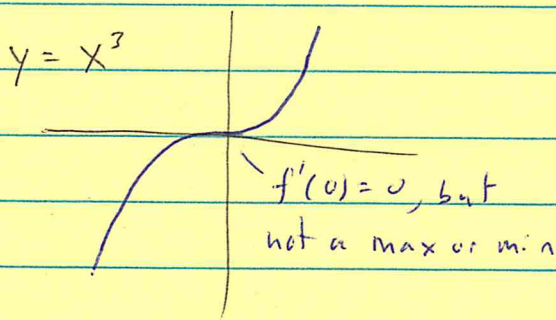 y = x³
f'(0) = 0, but
not a max or min